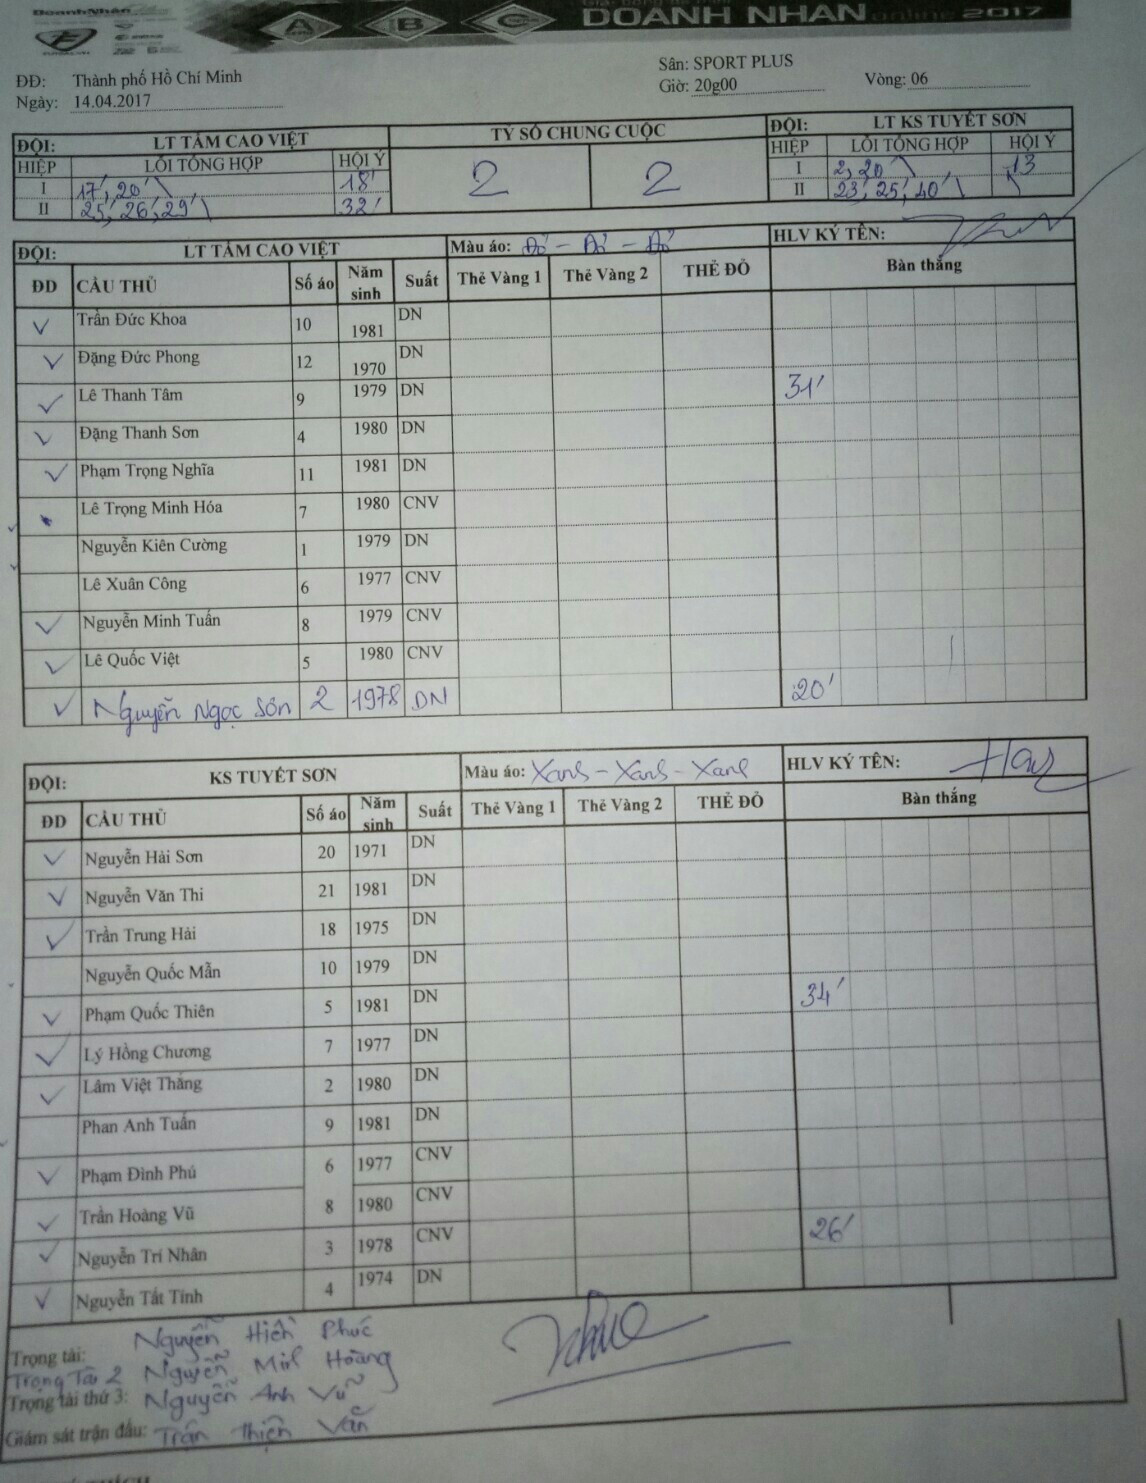 DoanhNhân
A B C
DOANH NHÂN online 2017
ĐĐ: Thành phố Hồ Chí Minh
Sân: SPORT PLUS
Ngày: 14.04.2017
Giờ: 20g00
Vòng: 06
ĐỘI: LT TẦM CAO VIỆT TỶ SỐ CHUNG CUỘC ĐỘI: LT KS TUYẾT SƠN
HIỆP LỖI TỔNG HỢP HỘI Ý 2 2 HIỆP LỖI TỔNG HỢP HỘI Ý
I 17', 20' 18' I 2, 20' 13
II 25', 26', 29' 32' II 23', 25', 40'
ĐỘI: LT TẦM CAO VIỆT Màu áo: Đỏ - Đỏ - Đỏ HLV KÝ TÊN:
ĐD CẦU THỦ Số áo Năm sinh Suất Thẻ Vàng 1 Thẻ Vàng 2 THẺ ĐỎ Bàn thắng
Trần Đức Khoa 10 1981 DN
Đặng Đức Phong 12 1970 DN
Lê Thanh Tâm 9 1979 DN 31'
Đặng Thanh Sơn 4 1980 DN
Phạm Trọng Nghĩa 11 1981 DN
Lê Trọng Minh Hóa 7 1980 CNV
Nguyễn Kiên Cường 1 1979 DN
Lê Xuân Công 6 1977 CNV
Nguyễn Minh Tuấn 8 1979 CNV
Lê Quốc Việt 5 1980 CNV
Nguyễn Ngọc Sơn 2 1978 DN 20'
ĐỘI: KS TUYẾT SƠN Màu áo: Xanh - Xanh - Xanh HLV KÝ TÊN:
ĐD CẦU THỦ Số áo Năm sinh Suất Thẻ Vàng 1 Thẻ Vàng 2 THẺ ĐỎ Bàn thắng
Nguyễn Hải Sơn 20 1971 DN
Nguyễn Văn Thi 21 1981 DN
Trần Trung Hải 18 1975 DN
Nguyễn Quốc Mẫn 10 1979 DN
Phạm Quốc Thiên 5 1981 DN 34'
Lý Hồng Chương 7 1977 DN
Lâm Việt Thắng 2 1980 DN
Phan Anh Tuấn 9 1981 DN
Phạm Đình Phú 6 1977 CNV
Trần Hoàng Vũ 8 1980 CNV
Nguyễn Trí Nhân 3 1978 CNV 26'
Nguyễn Tất Tính 4 1974 DN
Trọng tài: Nguyễn Hiền Phúc
Trọng Tài 2 Nguyễn Minh Hoàng
Trọng tài thứ 3: Nguyễn Anh Vũ
Giám sát trận đấu: Trần Thiện Văn